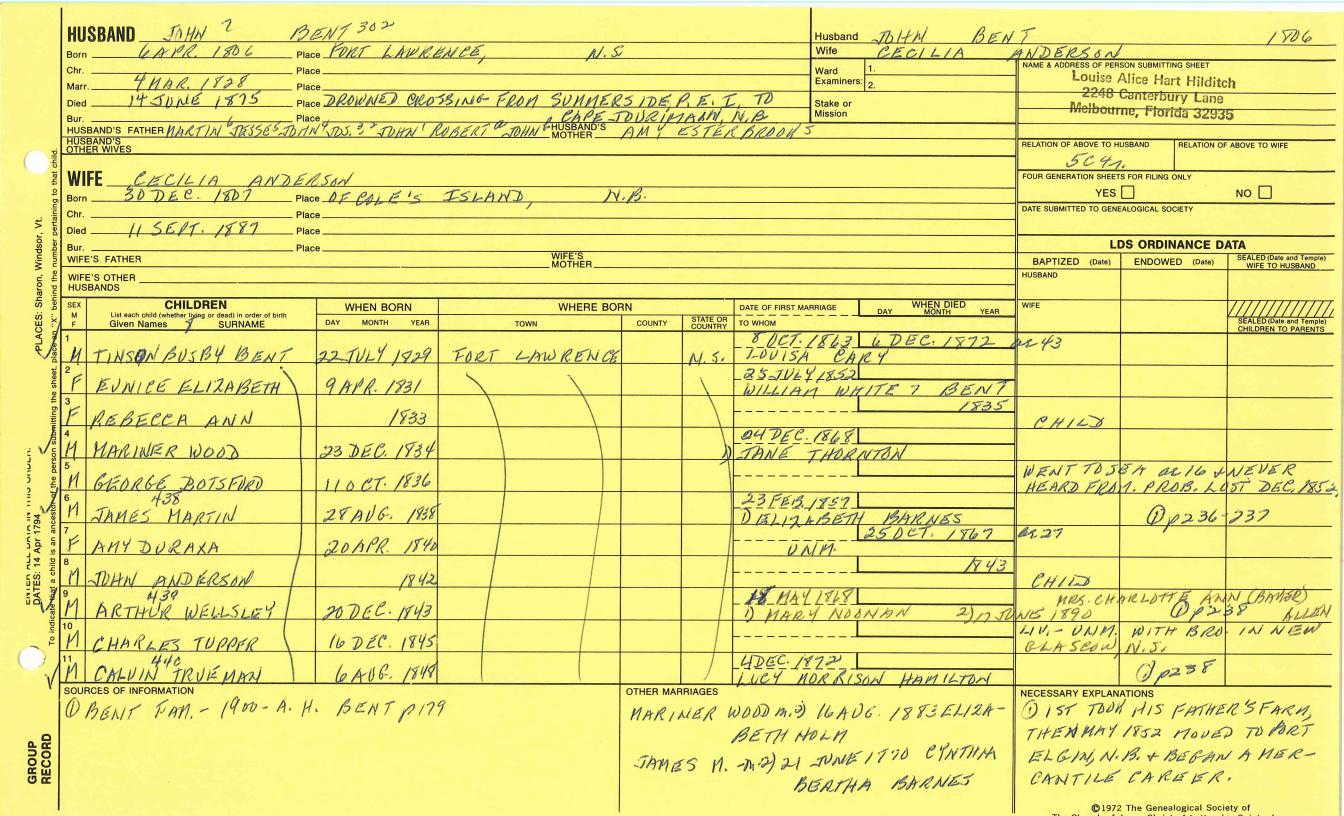 HUSBAND JOHN 7 BENT 302
Born 6 APR. 1806 Place FORT LAWRENCE, N.S
Chr. Place
Marr. 4 MAR. 1828 Place
Died 14 JUNE 1875 Place DROWNED CROSSING FROM SUMMERSIDE, P.E.I. TO
Bur. Place CAPE JOURIMAIN, N.B.
HUSBAND'S FATHER MARTIN 6 JESSE 5 JOHN 4 JOS. 3 2 JOHN 1 ROBERT JOHN HUSBAND'S MOTHER AMY ESTERBROOKS
HUSBAND'S OTHER WIVES
WIFE CECILIA ANDERSON
Born 30 DEC. 1807 Place OF COLE'S ISLAND, N.B.
Chr. Place
Died 11 SEPT. 1887 Place
Bur. Place
WIFE'S FATHER WIFE'S MOTHER
WIFE'S OTHER HUSBANDS
Husband JOHN BENT 1806
Wife CECILIA ANDERSON
Ward Examiners: 1.
2.
Stake or Mission
NAME & ADDRESS OF PERSON SUBMITTING SHEET
Louise Alice Hart Hilditch
2248 Canterbury Lane
Melbourne, Florida 32935
RELATION OF ABOVE TO HUSBAND RELATION OF ABOVE TO WIFE
5C 4r.
FOUR GENERATION SHEETS FOR FILING ONLY
YES NO
DATE SUBMITTED TO GENEALOGICAL SOCIETY
LDS ORDINANCE DATA
BAPTIZED (Date) ENDOWED (Date) SEALED (Date and Temple) WIFE TO HUSBAND
HUSBAND
WIFE
SEALED (Date and Temple) CHILDREN TO PARENTS
SEX M F CHILDREN WHEN BORN WHERE BORN DATE OF FIRST MARRIAGE WHEN DIED
List each child (whether living or dead) in order of birth
Given Names SURNAME DAY MONTH YEAR TOWN COUNTY STATE OR COUNTRY TO WHOM DAY MONTH YEAR
1 M TINSON BUSBY BENT 22 JULY 1829 FORT LAWRENCE N.S. 8 OCT. 1863 6 DEC. 1872 ae 43
LOUISA CARY
2 F EUNICE ELIZABETH 9 APR. 1831 25 JULY 1852
WILLIAM WHITE 7 BENT
3 F REBECCA ANN 1833 1835 CHILD
4 M MARINER WOOD 23 DEC. 1834 24 DEC. 1868
1) JANE THORNTON
5 M GEORGE BOTSFORD 11 OCT. 1836 WENT TO SEA ae 16 & NEVER
HEARD FROM. PROB. LOST DEC. 1852
6 M JAMES MARTIN 438 28 AUG. 1838 23 FEB. 1857
1) ELIZABETH BARNES ① p236-237
7 F AMY DURAXA 20 APR. 1840 UNM. 25 OCT. 1867 ae 27
8 M JOHN ANDERSON 1842 1843 CHILD
9 M ARTHUR WELLSLEY 439 20 DEC. 1843 18 MAY 1868 MRS. CHARLOTTE ANN (BAKER)
1) MARY NOONAN 2) 17 JUNE 1890 ① p238 ALLEN
10 M CHARLES TUPPER 16 DEC. 1845 LIV. - UNM. WITH BRO. IN NEW
GLASGOW, N.S.
11 M CALVIN TRUEMAN 440 6 AUG. 1848 4 DEC. 1872 ① p238
LUCY MORRISON HAMILTON
SOURCES OF INFORMATION
① BENT FAM. - 1900 - A. H. BENT p179
OTHER MARRIAGES
MARINER WOOD m. 2) 16 AUG. 1883 ELIZA-
BETH HOLM
JAMES M. m. 2) 21 JUNE 1770 CYNTHIA
BERTHA BARNES
NECESSARY EXPLANATIONS
① 1ST TOOK HIS FATHER'S FARM,
THEN MAY 1852 MOVED TO PORT
ELGIN, N.B. & BEGAN A MER-
CANTILE CAREER.
©1972 The Genealogical Society of
PLACES: Sharon, Windsor, Vt.
DATES: 14 Apr 1794
To indicate that a child is an ancestor of the person submitting the sheet, place an "X" behind the number pertaining to that child.
GROUP RECORD